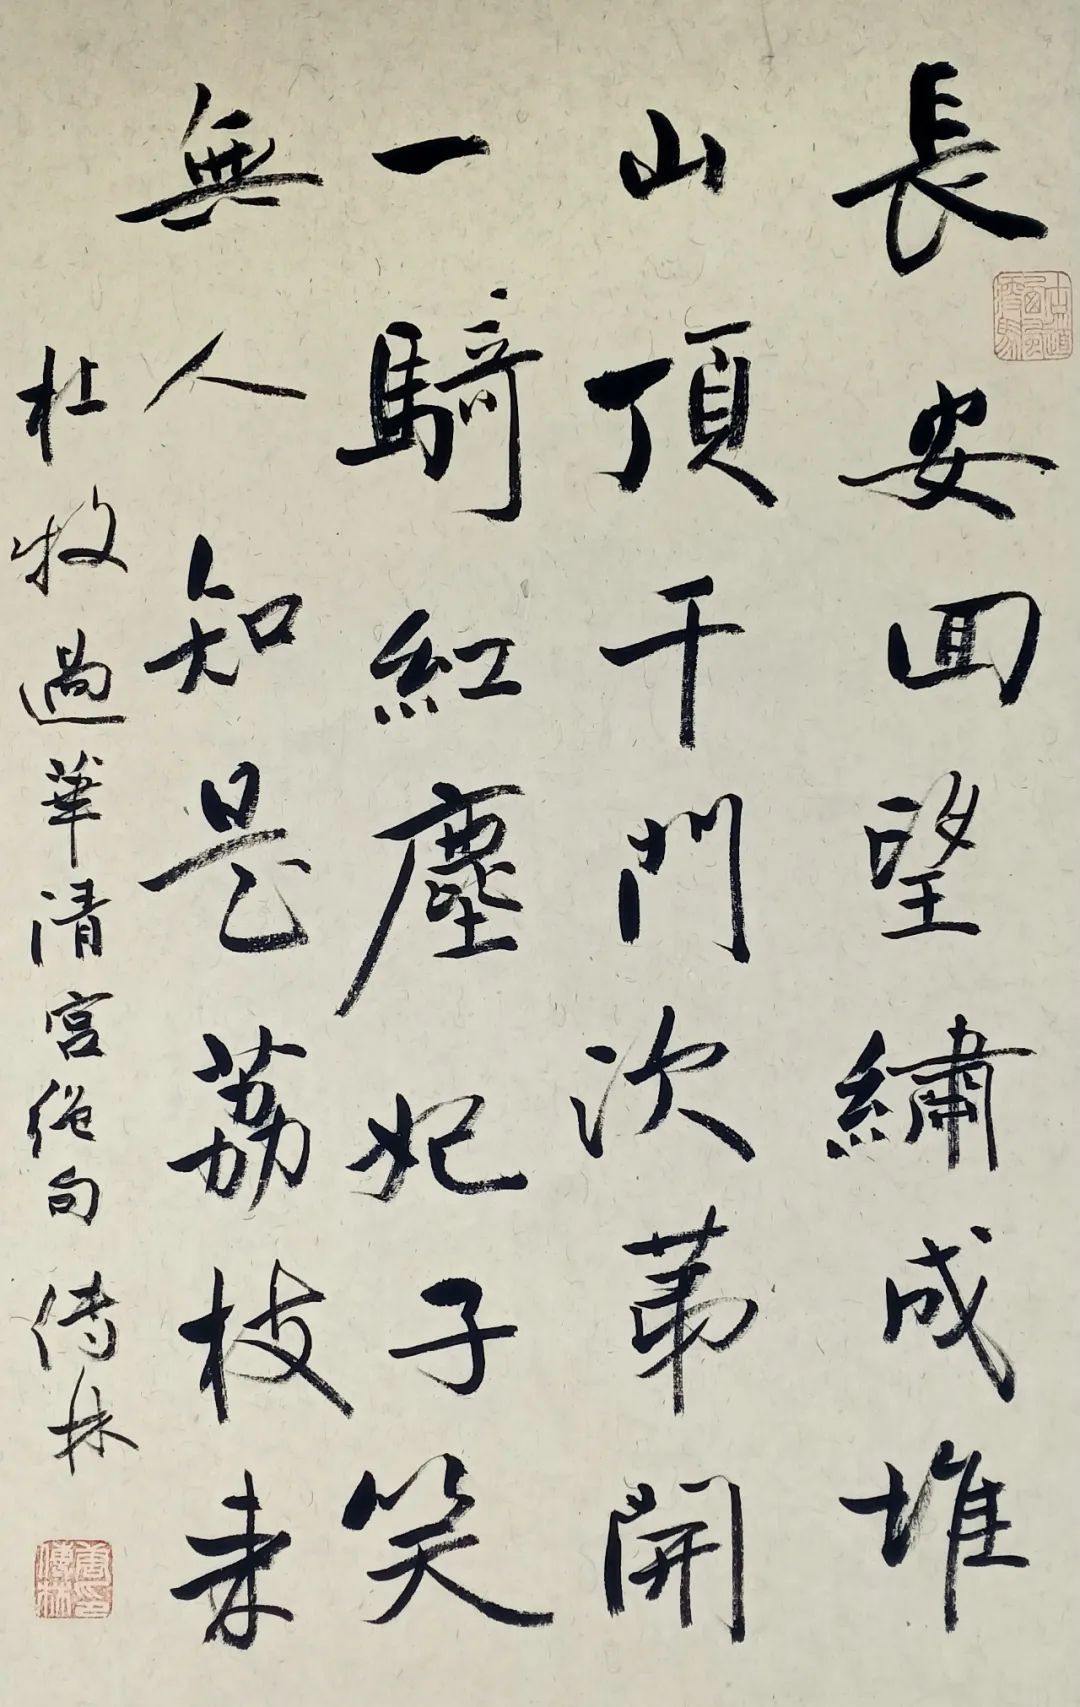 長安回望繡成堆
山頂千門次第開
一騎紅塵妃子笑
無人知是荔枝来
杜牧過華清宮绝句 傳林